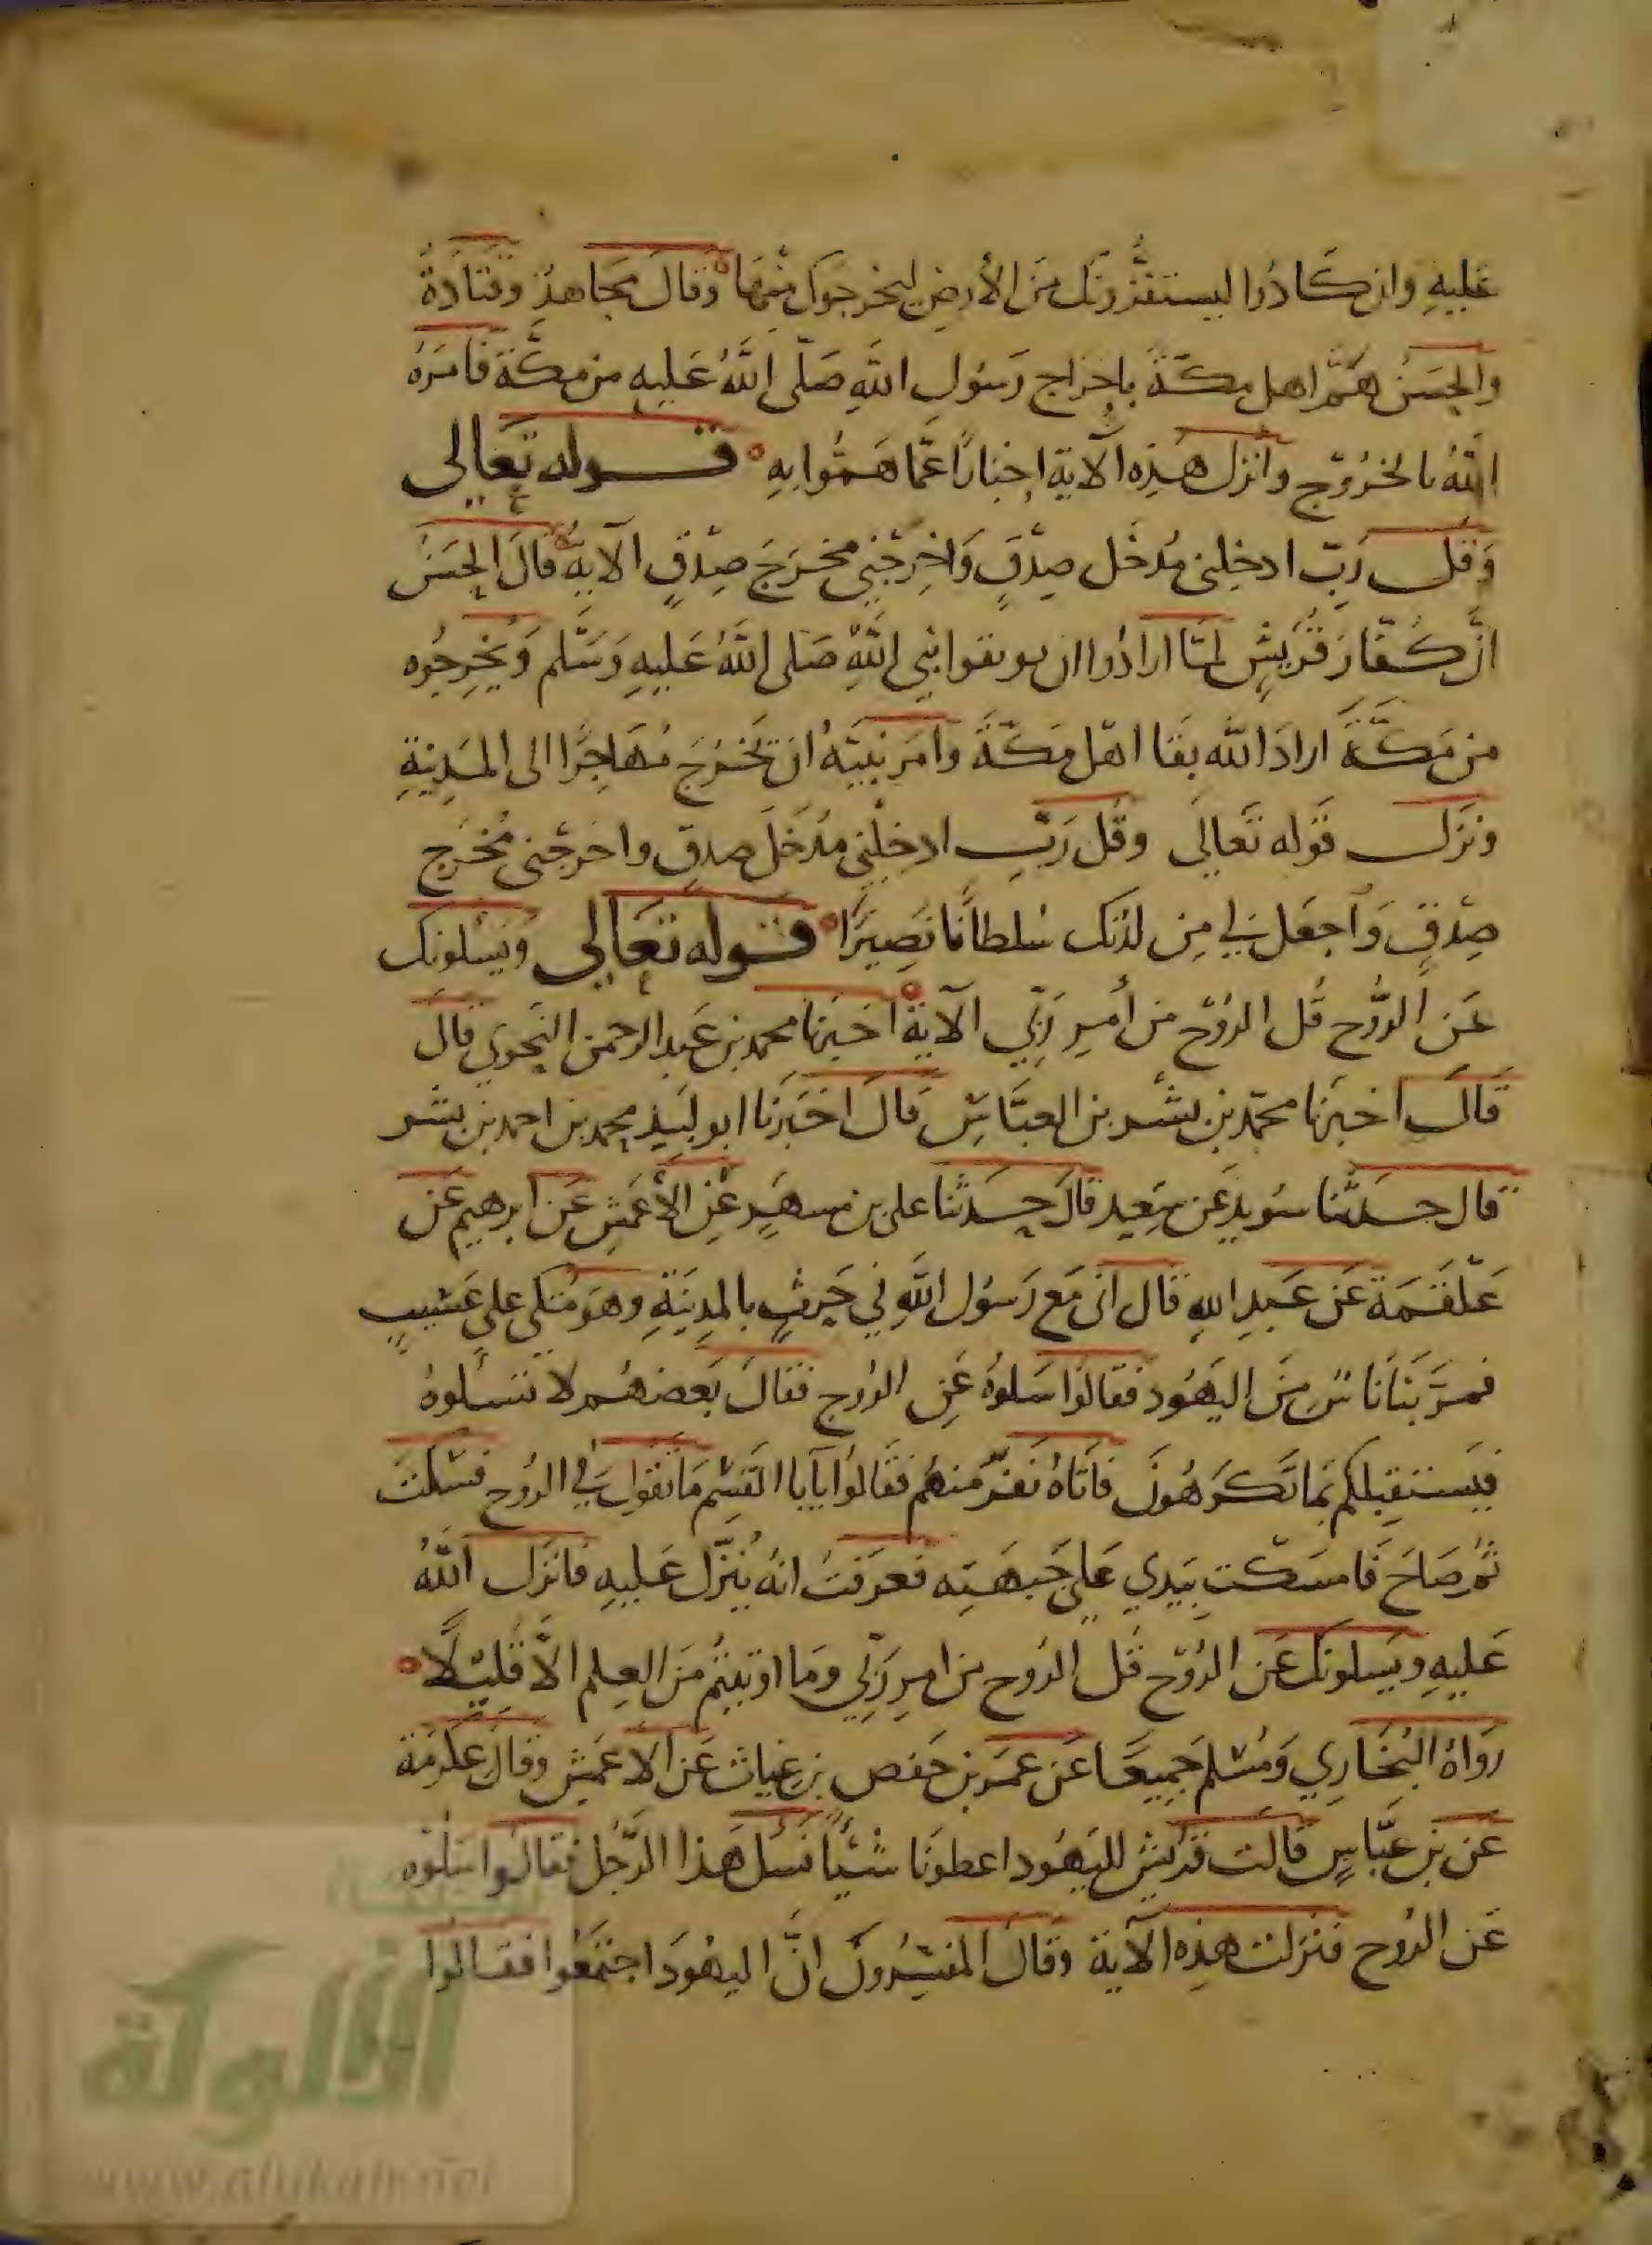 عليه وان كادوا ليستفزونك من الأرض ليخرجوك منها وقال مجاهد وقتادة
والحسن همّ اهل مكة باخراج رسول الله صلى الله عليه من مكة فامره
الله بالخروج وانزل هذه الآية اخبارا عما هموا به قوله تعالى
وقل رب ادخلني مدخل صدق واخرجني مخرج صدق الآية قال الحسن
انّ كفار قريش لما ارادوا ان يوبقوا نبي الله صلى الله عليه وسلم ويخرجوه
من مكة اراد الله بقا اهل مكة وامر نبيه ان يخرج مهاجرا الى المدينة
ونزل قوله تعالى وقل رب ادخلني مدخل صدق واخرجني مخرج
صدق واجعل لي من لدنك سلطانا نصيرا قوله تعالى ويسئلونك
عن الروح قل الروح من أمر ربي الآية اخبرنا محمد بن عبد الرحمن النحوي قال
قال اخبرنا محمد بن بشر بن العباس قال اخبرنا ابو لبيد محمد بن احمد بن بشر
قال حدثنا سويد عن سعيد قال حدثنا على بن مسهر عن الأعمش عن ابرهيم عن
علقمة عن عبد الله قال انى مع رسول الله في حرث بالمدينة وهو متكي على عسيب
فمر بنا ناس من اليهود فقالوا سلوه عن الروح فقال بعضهم لا تسألوه
فيستقبلكم بما تكرهون فاتاه نفر منهم فقالوا يا با القسم ما تقول في الروح فسكت
ثم صاح فامسكت بيدي على جبهته فعرفت انه ينزل عليه فانزل الله
عليه ويسلونك عن الروح قل الروح من امر ربي وما اوتيتم من العلم الا قليلا
رواه البخاري ومسلم جميعا عن عمر بن حفص بن غياث عن الاعمش وقال عكرمة
عن بن عباس قالت قريش لليهود اعطونا شيئا نسل هذا الرجل فقالوا سلوه
عن الروح فنزلت هذه الآية وقال المفسرون انّ اليهود اجتمعوا فقالوا
الألوكة
www.alukah.net